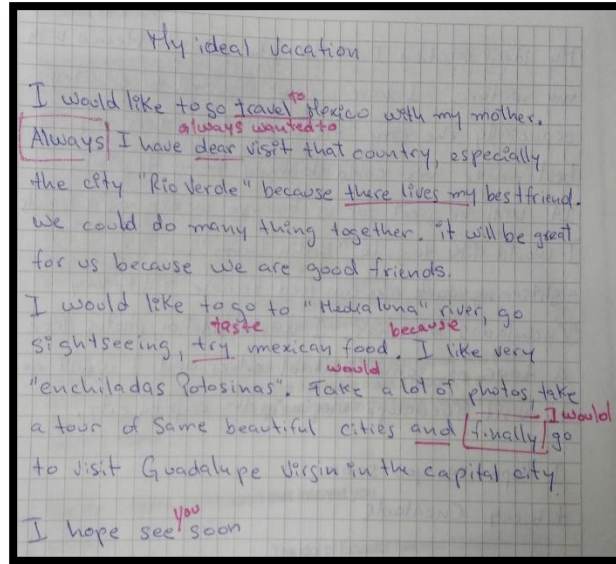 My ideal Vacation
I would like to go travel to Mexico with my mother.
always wanted to
Always I have dear visit that country, especially
the city "Rio Verde" because there lives my best friend.
We could do many thing together. it will be great
for us because we are good friends.
I would like to go to "Media luna" river, go
taste because
sightseeing, try mexican food. I like very
would
"enchiladas Potosinas". Take a lot of photos, take
I would
a tour of Same beautiful cities and finally go
to visit Guadalupe Virgin in the capital city
you
I hope see soon